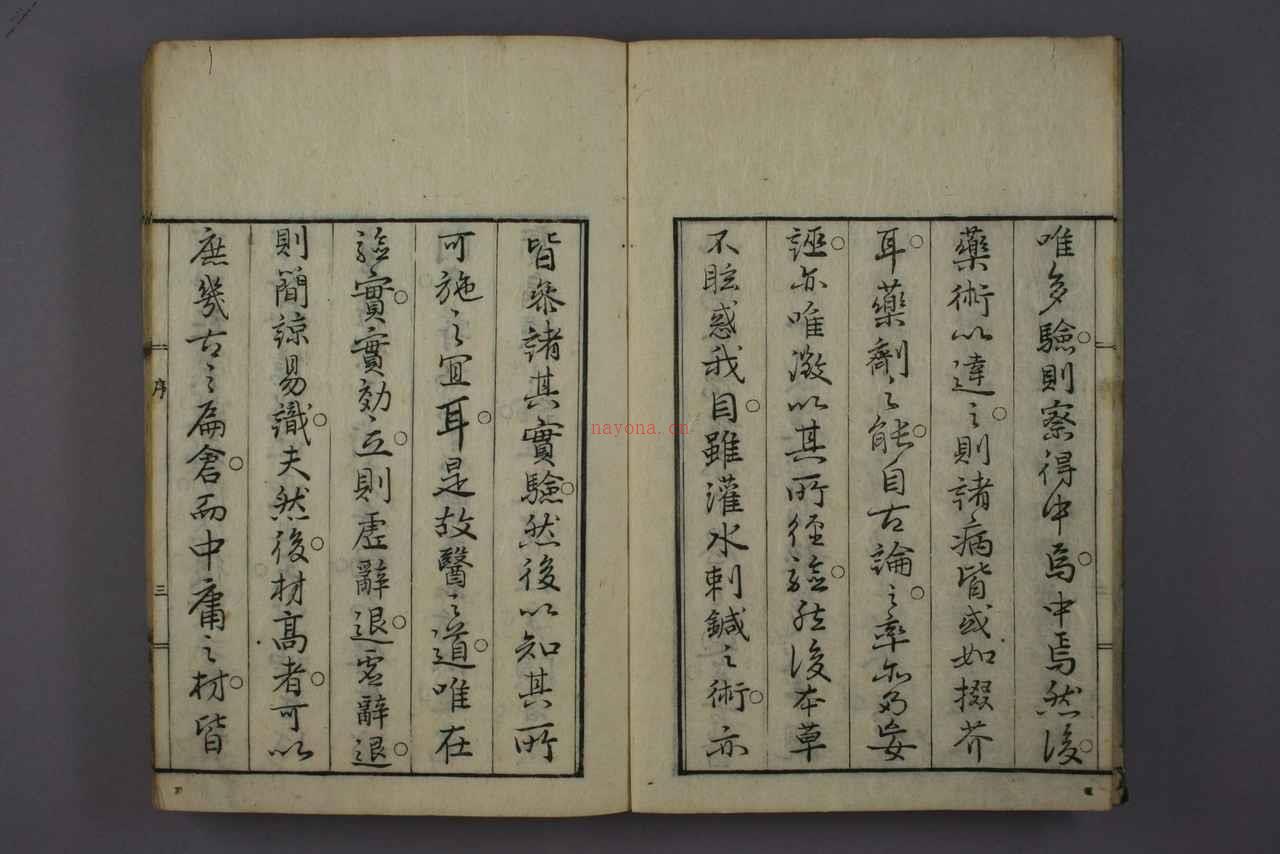 唯多驗則察得中焉中焉然後
藥術以達之則諸病皆或如掇芥
耳藥劑之能自古論之率亦為妄
誣亦唯澂以其所徑驗然後本草
不眩惑我目雖灌水刺鍼之術亦
皆參諸其實驗然後以知其所
可施之宜耳是故醫之道唯在
驗實實效立則虛辭退虛辭退
則簡諒易識夫然後材高者可以
庶幾古之扁倉而中庸之材皆
序
三
nayona.cn